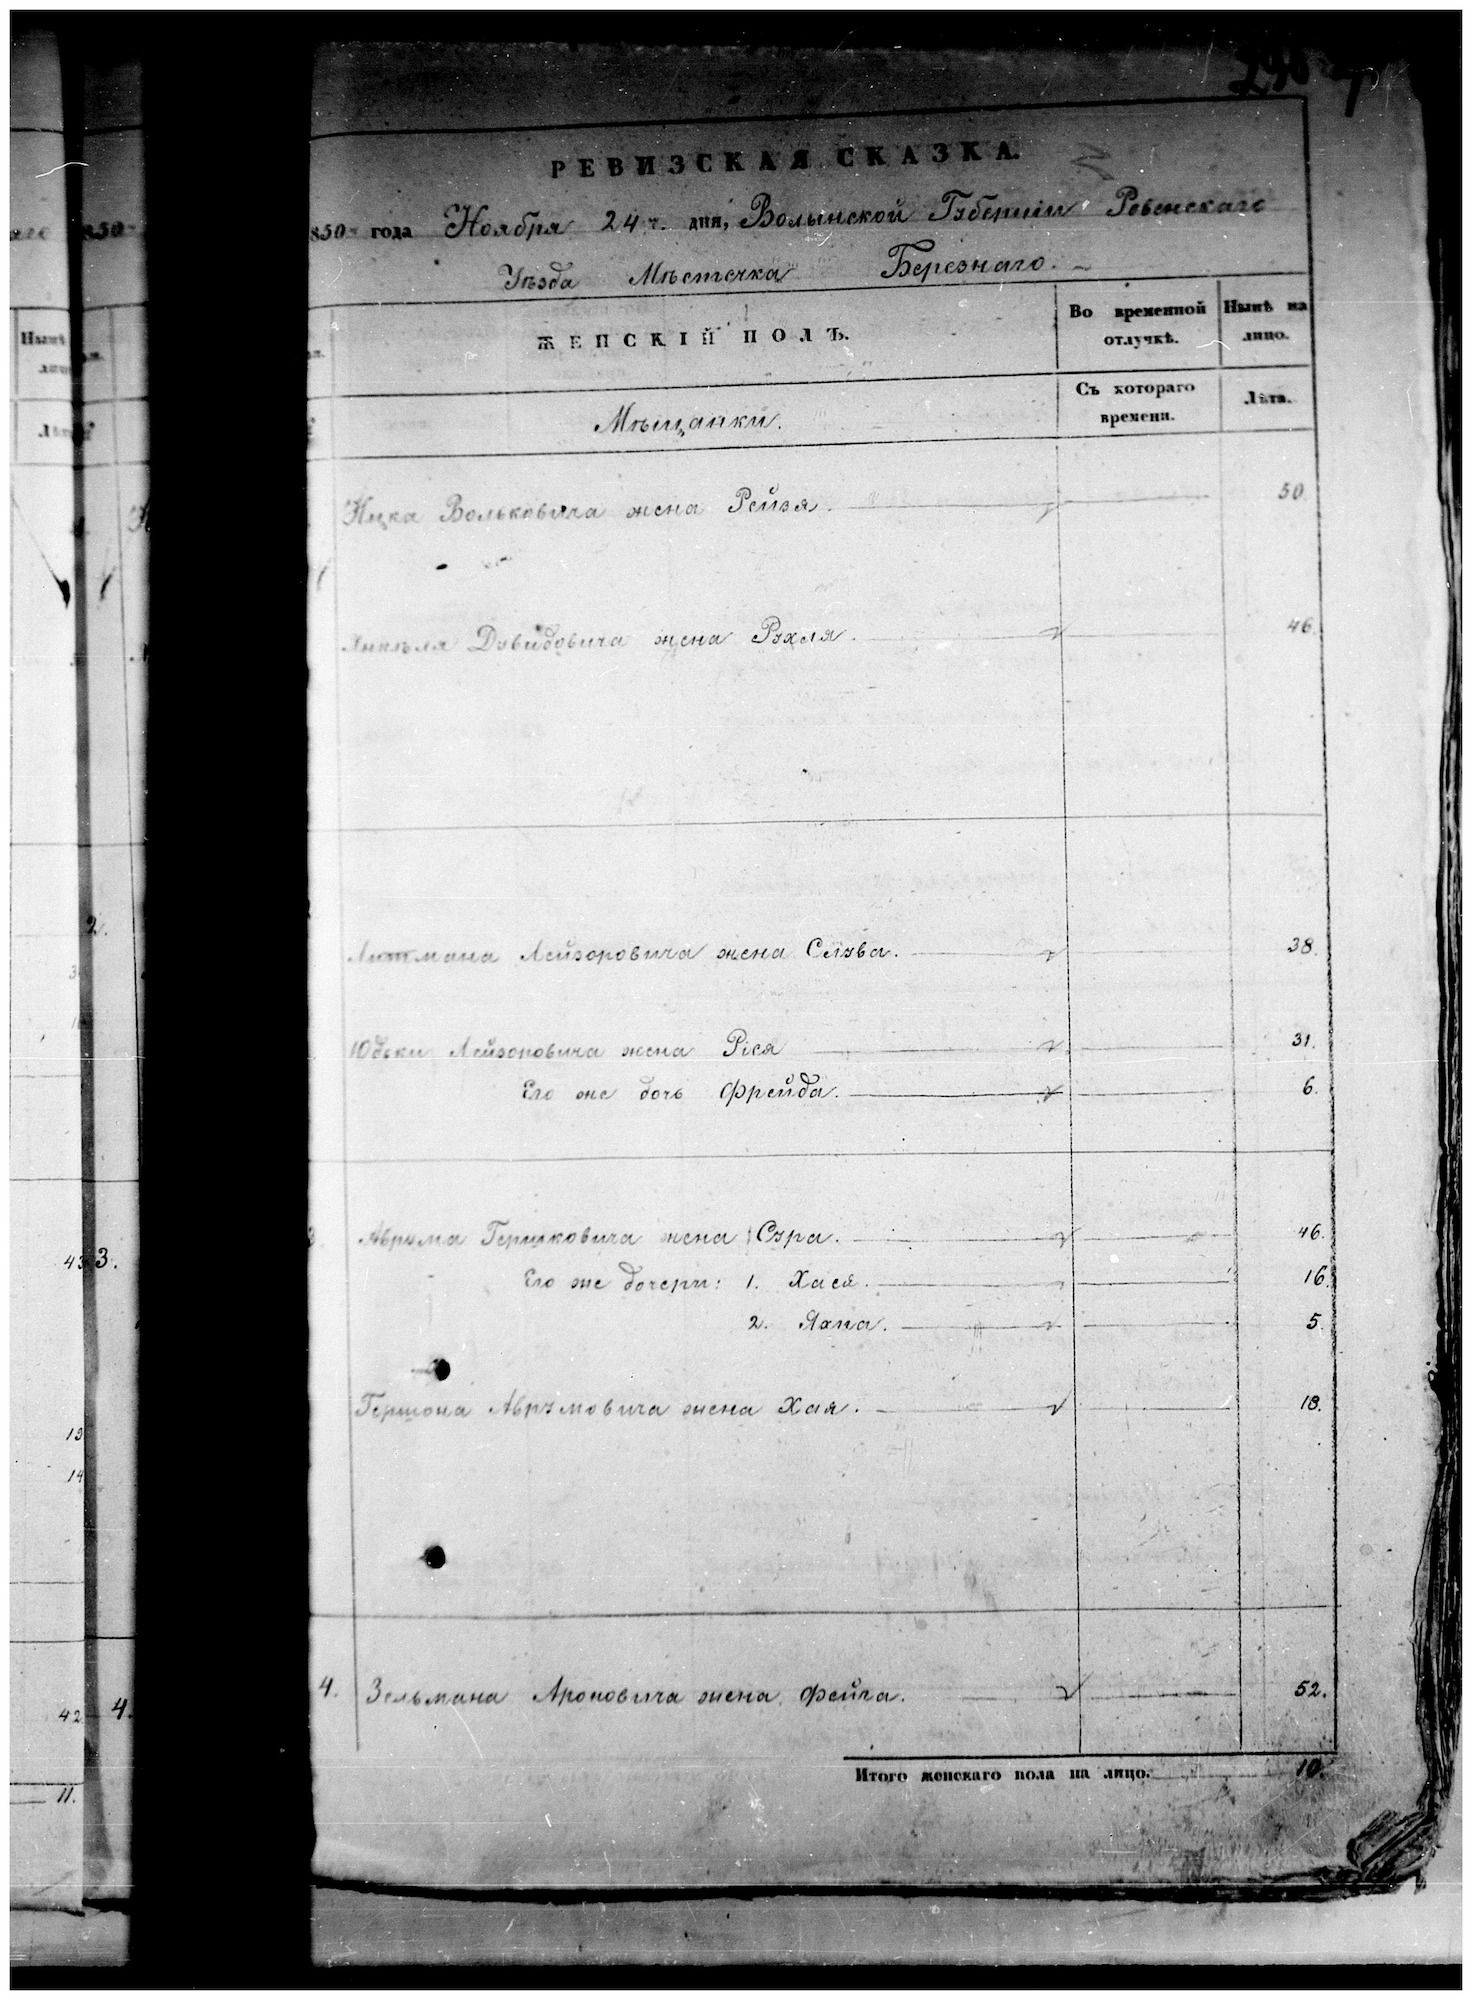 РЕВИЗСКАЯ СКАЗКА.
850 года Ноября 24 г. дня, Волынской Губерніи Ровенскаго
Уѣзда Мѣстечка Березнаго.
ЖЕНСКІЙ ПОЛЪ.
Во временной отлучкѣ.
Нынѣ на лицо.
Мѣщанки.
Съ котораго времени.
Лѣта.
Ицка Вольковича жена Рейзя. 50.
Янкеля Дувидовича жена Рухля. 46.
Литмана Лейзоровича жена Слува. 38.
Юдьки Лейзоровича жена Рися 31.
Его же дочь Фрейда. 6.
Аврума Гершковича жена Сура. 46.
Его же дочери: 1. Хася. 16.
2. Яхна. 5.
Гершона Аврумовича жена Хая. 18.
4. Зельмана Ароновича жена Фейга. 52.
Итого женскаго пола на лицо. 10.
850
Нынѣ
2.
43 3.
19
14
42 4.
11.